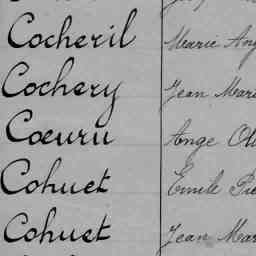 Cocheril Marie Ang
Cochery Jean Mari
Cœuru Ange Oli
Cohuet Emile Pie
Cohuet Jean Mar